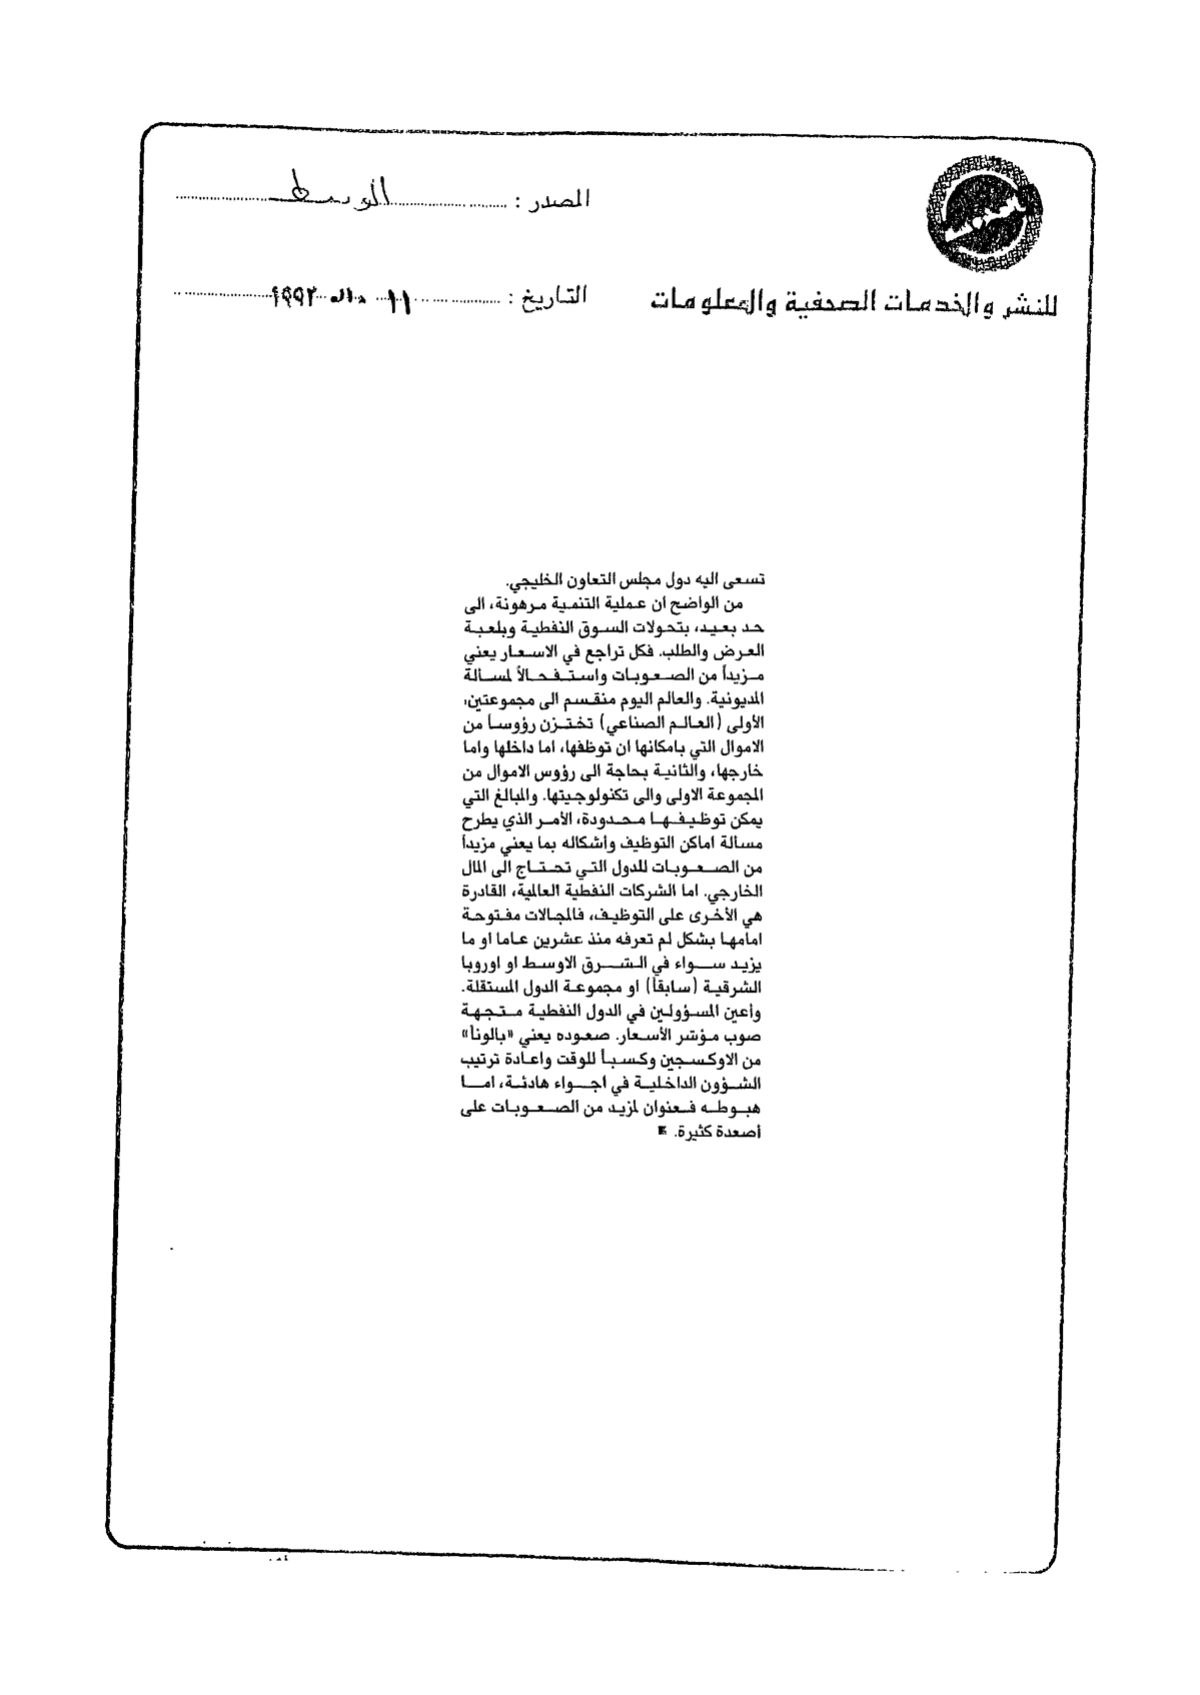 المصدر : الوسط
للنشر والخدمات الصحفية والمعلومات
التاريخ : ١١ ١٩٩٢
تسعى اليه دول مجلس التعاون الخليجي.
من الواضح ان عملية التنمية مرهونة، الى
حد بعيد، بتحولات السوق النفطية وبلعبة
العرض والطلب. فكل تراجع في الاسعار يعني
مزيداً من الصعوبات واستفحالاً لمسالة
المديونية. والعالم اليوم منقسم الى مجموعتين،
الأولى (العالم الصناعي) تختزن رؤوساً من
الاموال التي بامكانها ان توظفها، اما داخلها واما
خارجها، والثانية بحاجة الى رؤوس الاموال من
المجموعة الاولى والى تكنولوجيتها. والمبالغ التي
يمكن توظيفها محدودة، الأمر الذي يطرح
مسالة اماكن التوظيف واشكاله بما يعني مزيداً
من الصعوبات للدول التي تحتاج الى المال
الخارجي. اما الشركات النفطية العالمية، القادرة
هي الأخرى على التوظيف، فالمجالات مفتوحة
امامها بشكل لم تعرفه منذ عشرين عاما او ما
يزيد سواء في الشرق الاوسط او اوروبا
الشرقية (سابقاً) او مجموعة الدول المستقلة.
وأعين المسؤولين في الدول النفطية متجهة
صوب مؤشر الأسعار. صعوده يعني «بالوناً»
من الاوكسجين وكسباً للوقت واعادة ترتيب
الشؤون الداخلية في اجواء هادئة، اما
هبوطه فعنوان لمزيد من الصعوبات على
أصعدة كثيرة.